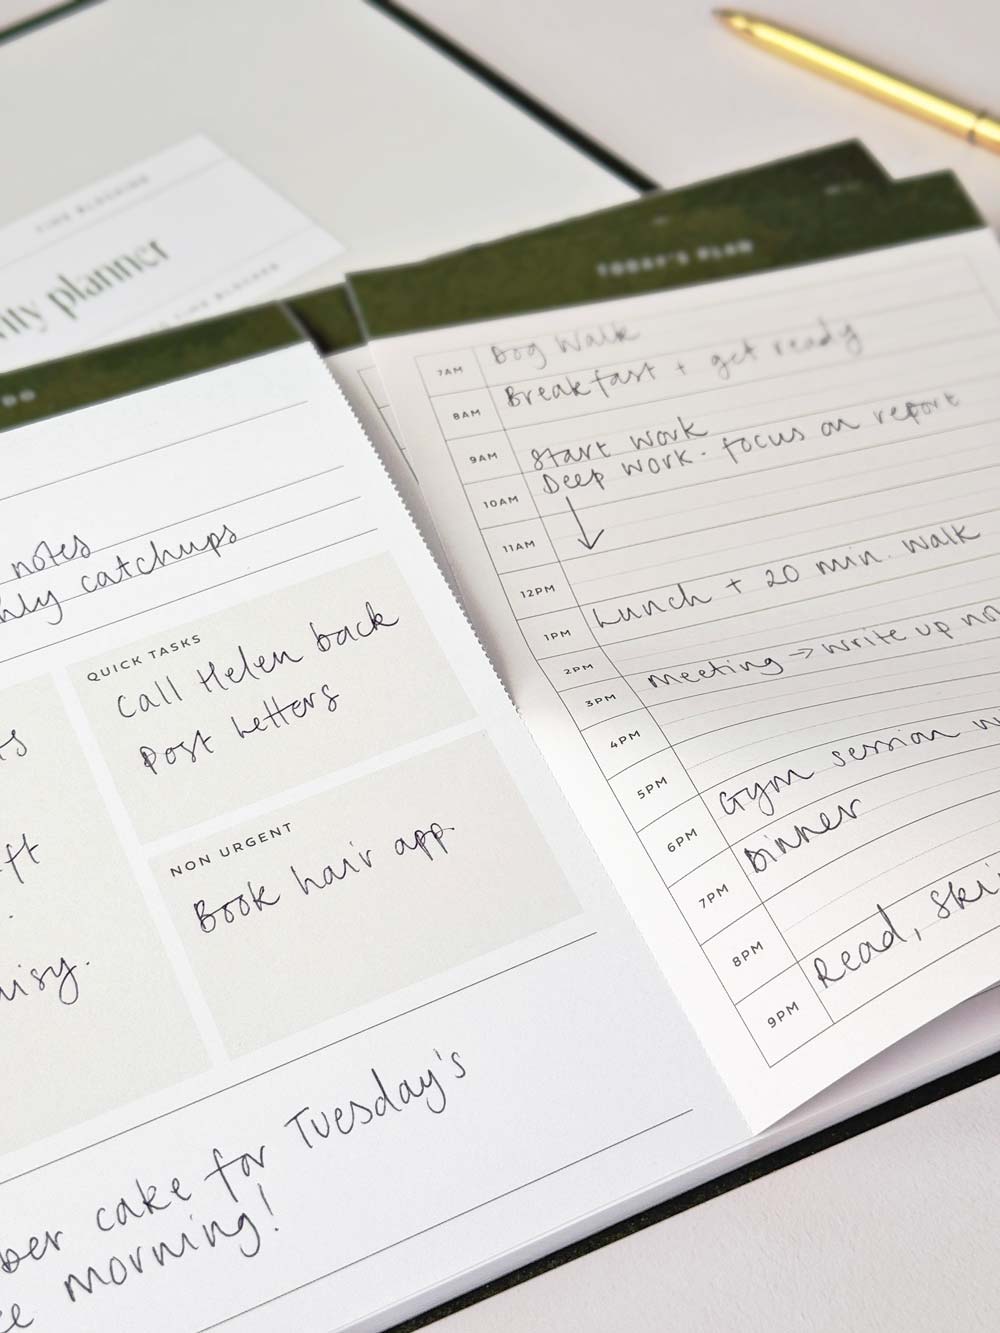 TIME BLOCKING
planner
TIME BLOCKER
DO
notes
catchups
QUICK TASKS
Call Helen back
Post Letters
NON URGENT
Book hair app.
cake for Tuesday's
morning!
TODAY'S PLAN
7AM Dog Walk
Breakfast + get ready
8AM
9AM Start work
Deep work. focus on report
10AM
11AM
12PM
1PM Lunch + 20 min. walk
2PM
3PM Meeting → write up
4PM
5PM
6PM Gym session
7PM Dinner
8PM
9PM Read,